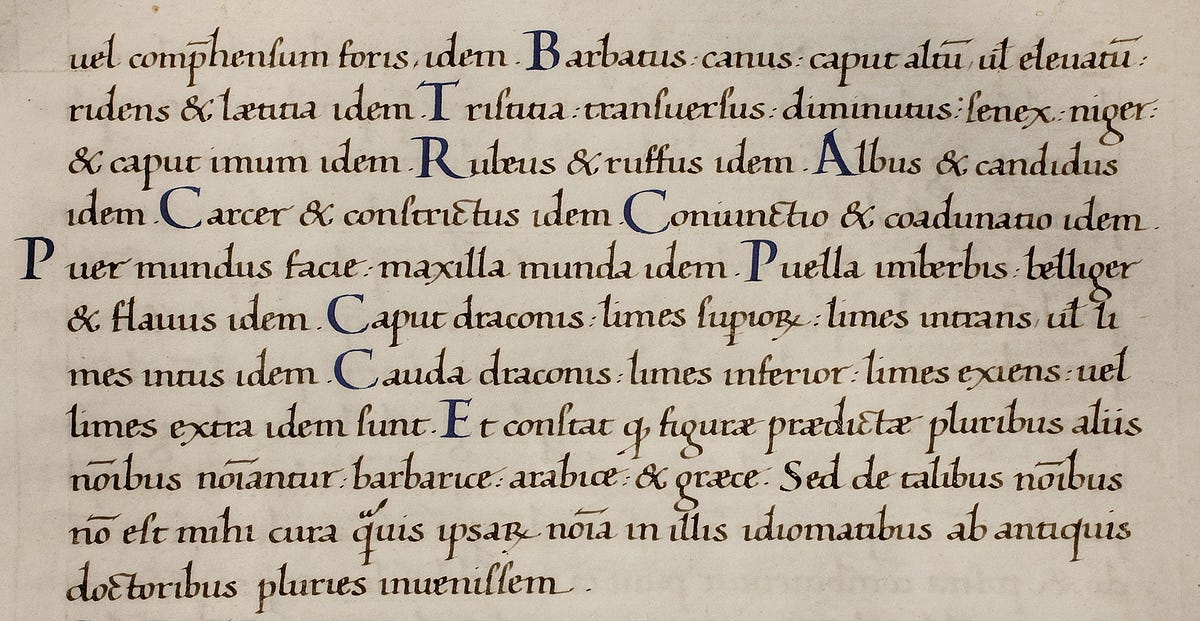 uel comp̄henſum foris, idem . Barbatus : canus : caput altū, ul̄ eleuatū :
ridens & lætitia idem . Tristitia : tranſuerſus : diminutus : ſenex : niger :
& caput imum idem . Rubeus & ruffus idem . Albus & candidus
idem . Carcer & conſtrictus idem Coniunctio & coadunatio idem .
Puer mundus facie : maxilla munda idem . Puella imberbis : belliger
& flauus idem . Caput draconis : limes ſuꝑioꝝ : limes intrans, ul̄ li
mes intus idem . Cauda draconis : limes inferior : limes exiens : uel
limes extra idem ſunt . Et conſtat ꝙ figuræ prædictæ pluribus aliis
nōībus noīantur : barbarice : arabice : & græce : Sed de talibus noībus
nō eſt mihi cura q̈uis ipsaꝝ noīa in illis idiomatibus ab antiquis
doctoribus pluries inueniſſem .